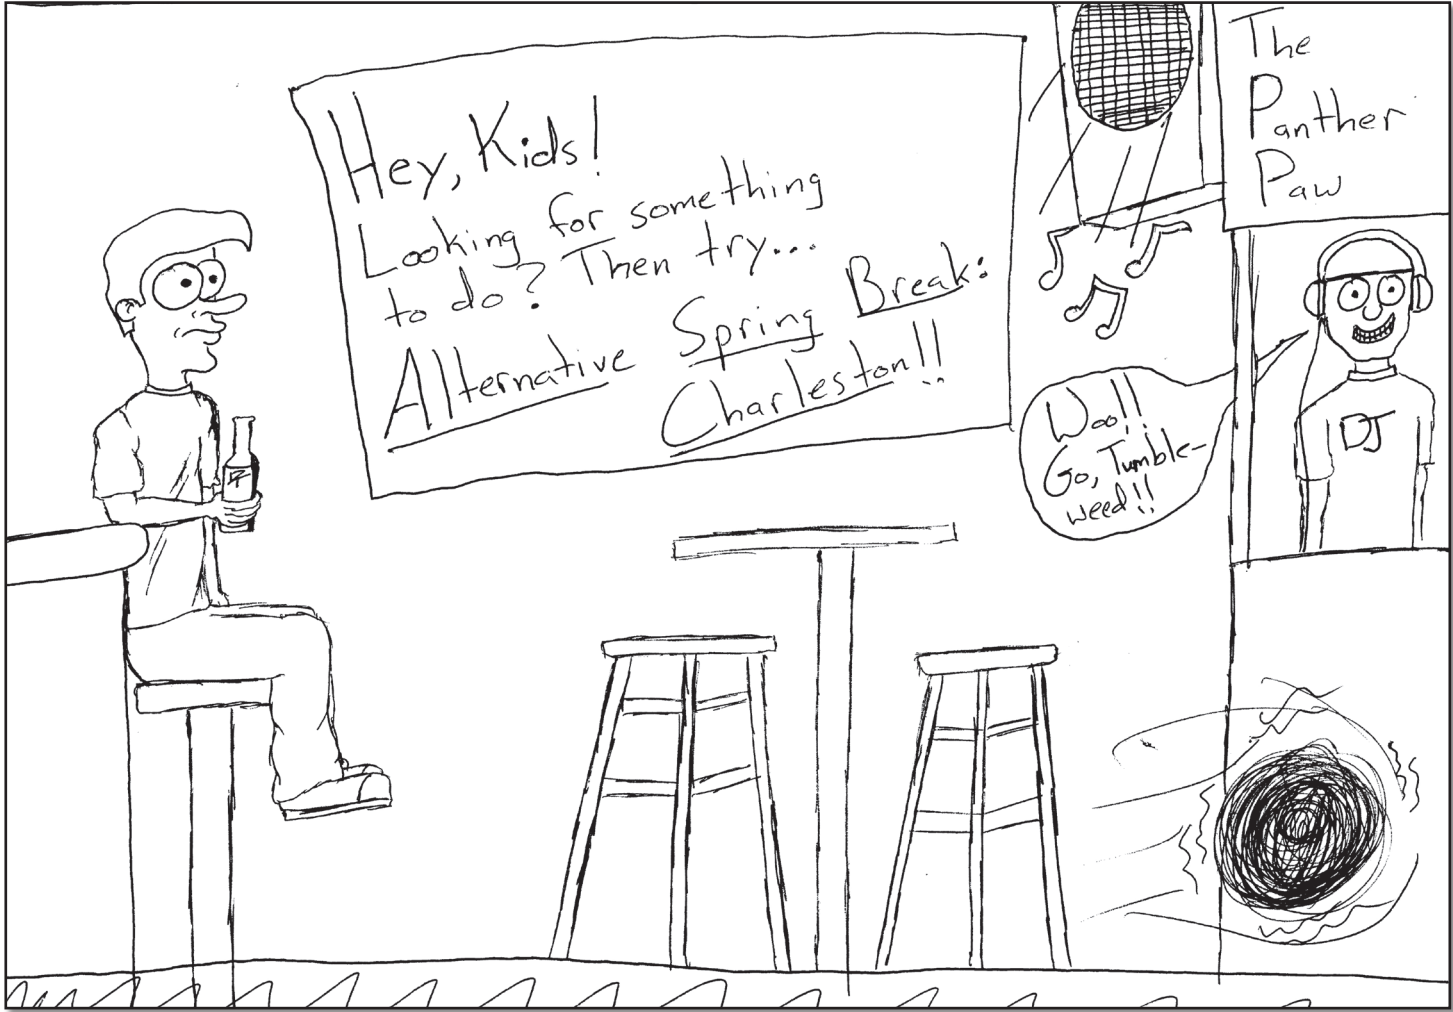 Hey, Kids!
Looking for something
to do? Then try...
Alternative Spring Break:
Charleston!!
The
Panther
Paw
Woo!!
Go, Tumble-
weed!!
DJ